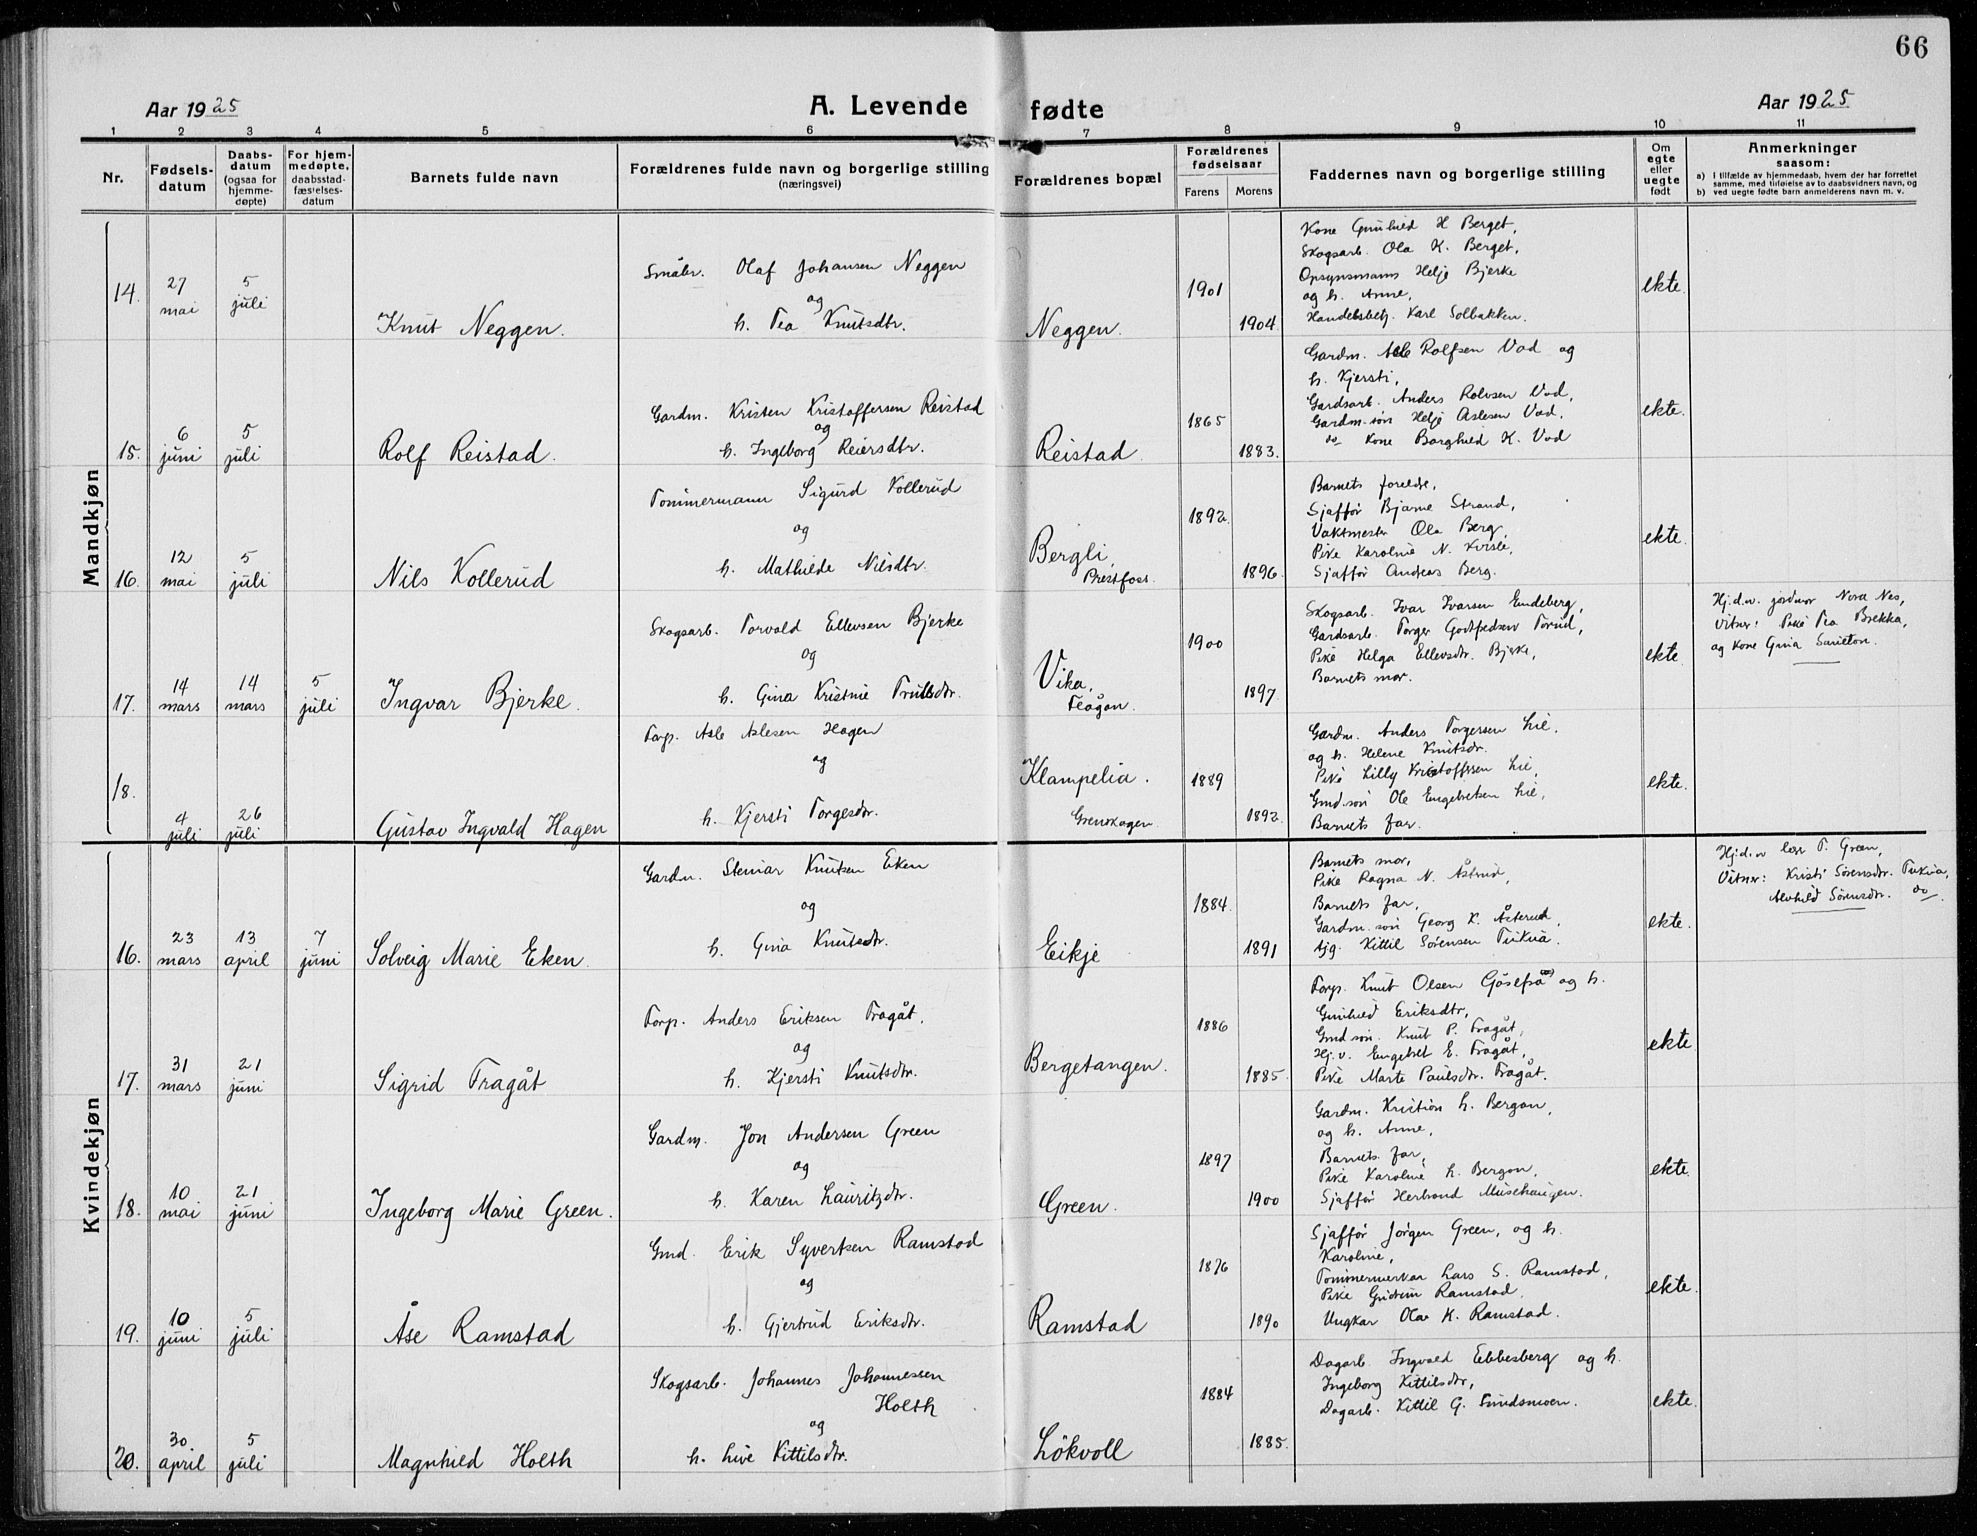 66
Aar 1925
A. Levende fødte
Aar 1925
1 2 3 4 5 6 7 8 9 10 11
Nr.
Fødselsdatum
Daabsdatum (ogsaa for hjemmedøpte)
For hjemmedøpte, daabsstadfæstelsesdatum
Barnets fulde navn
Forældrenes fulde navn og borgerlige stilling
(næringsvei)
Forældrenes bopæl
Forældrenes fødselsaar
Farens Morens
Faddernes navn og borgerlige stilling
Om egte eller uegte født
Anmerkninger
saasom:
a) i tilfælde av hjemmedaab, hvem der har forrettet samme, med tilføielse av to daabsvidners navn, og
b) ved uegte fødte barn anmelderens navn m. v.
Mandkjøn
14. 27 mai 5 juli
Knut Neggen.
Småbr. Olaf Johansen Neggen
og
h. Tea Knutsdtr.
Neggen.
1901
1904
Kone Gunhild H Berget,
Skogsarb. Ola K. Berget,
Opsynsmann Helje Bjerke
og h. Anne,
Handelsbetj. Karl Solbakken.
ekte.
15. 6 juni 5 juli
Rolf Reistad.
Gardm. Kristen Kristoffersen Reistad
og
h. Ingeborg Reiersdtr.
Reistad
1865
1883.
Gardm. Asle Rolfsen Vad og
h. Kjersti,
Gardsarb. Anders Rolvsen Vad,
Gardm.søn Helje Aslesen Vad,
do Kone Borghild K. Vad
ekte.
16. 12 mai 5 juli
Nils Kollerud
Tømmermann Sigurd Kollerud
og
h. Mathilde Nilsdtr.
Bergli,
Prestfoss.
1892
1896.
Barnets foreldre,
Sjaffør Bjarne Strand,
Vaktmester Ola Berg,
Pike Karoline N. Kvisle,
Sjaffør Andreas Berg.
ekte.
17. 14 mars 14 mars 5 juli
Ingvar Bjerke.
Skogsarb. Torvald Ellevsen Bjerke
og
h. Gina Kristine Trulsdtr.
Vika,
Flågan.
1900
1897.
Skogsarb. Ivar Ivarsen Endeberg,
Gardsarb. Torger Torud,
Pike Helga Ellevsdtr. Bjerke,
Barnets mor.
ekte.
Hj.d.v. jordmor Nora Nes,
Vitner: Pike Tea Brekka,
og Kone Gina
18. 4 juli 26 juli
Gustav Ingvald Hagen
Torp. Asle Aslesen Hagen
og
h. Kjersti Torgesdtr.
Klampelia.
Grenskogen.
1889
1892.
Gardm. Anders Torgersen Lie,
og h. Helene Knutsdr.
Pike Lilly Kristoffersen Lie,
Gmd.søn Ole Engebretsen Lie,
Barnets far.
ekte.
Kvindekjøn
16. 23 mars 13 april 7 juni
Solveig Marie Eken.
Gardm. Steinar Knutsen Eken
og
h. Gina Knutsdr.
Eikje
1884.
1891
Barnets mor,
Pike Ragna N. Åstrud,
Barnets far,
Gardm.søn Georg K. Åsterud,
Kittil Sørensen Tukua.
ekte.
Hj.d.v lær T. Green,
Vitner: Kristi Sørensdtr. Tukua,
Alvhild Sørensdtr. do.
17. 31 mars 21 juni
Sigrid Fragåt
Torp. Anders Eriksen Fragåt,
og
h. Kjersti Knutsdtr.
Bergetangen.
1886
1885.
Torp. Knut Olsen og h.
Gunhild Eriksdtr,
Gmd.søn. Knut P. Fragåt,
Hj.v. Engebret E. Fragåt,
Pike Marte Paulsdtr. Fragåt.
ekte.
18. 10 mai 21 juni
Ingeborg Marie Green.
Gardm. Jon Andersen Green
og
h. Karen Lauritzdtr.
Green.
1897
1900
Gardm. Kristian H. Bergan,
og h. Anne,
Barnets far,
Pike Karoline H. Bergan,
Sjaffør Herbrand Musehaugen.
ekte.
19. 10 juni 5 juli
Åse Ramstad
Gmd. Erik Syvertsen Ramstad
og
h. Gjertrud Eriksdtr.
Ramstad
1876
1890
Sjaffør Jørgen Green, og h.
Karoline,
Lars S. Ramstad,
Pike Ramstad,
Ungkar Ola K. Ramstad.
ekte.
20. 30 april 5 juli
Magnhild Holth
Skogsarb. Johannes Johannessen
Holth
og
h. Live Kittilsdtr.
Løkvoll
1884
1885.
Dagarb. Ingvald Ebbesberg og h.
Ingeborg Kittilsdtr,
Dagarb. Kittil G. Sundsmoen.
ekte.